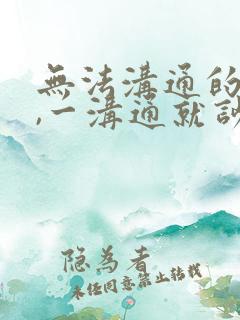 無法溝通的
,一溝通就
隐為者
未任同意禁止转载